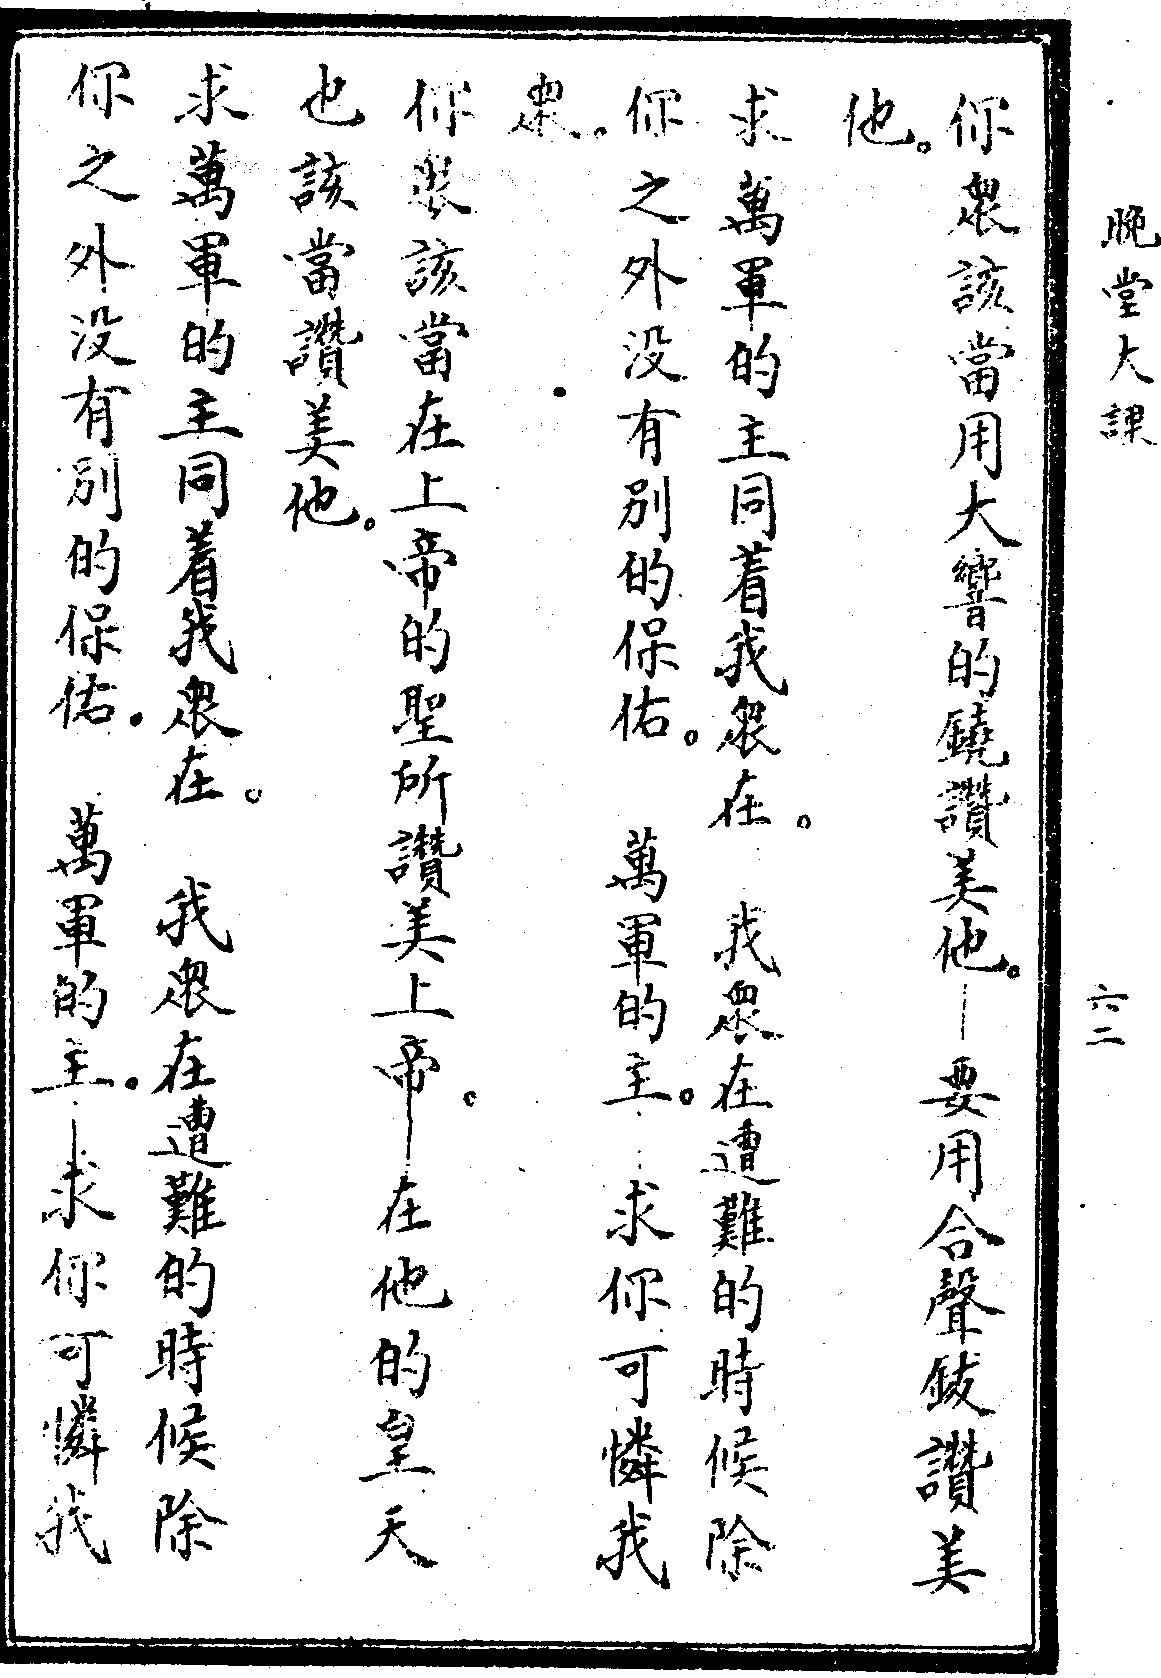 晚堂大課
六二
你眾該當用大響的鐃讚美他。—要用合聲鈸讚美
他。
求萬軍的主同着我眾在。 我眾在遭難的時候除
你之外没有別的保佑。 萬軍的主。—求你可憐我
眾。
你眾該當在上帝的聖所讚美上帝。—在他的皇天
也該當讚美他。
求萬軍的主同着我眾在。 我眾在遭難的時候除
你之外没有別的保佑。 萬軍的主。—求你可憐我